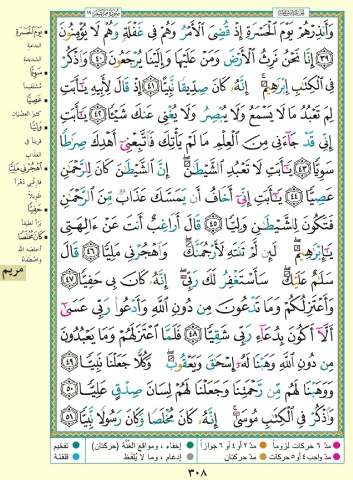 وَأَنذِرْهُمْ يَوْمَ ٱلْحَسْرَةِ إِذْ قُضِىَ ٱلْأَمْرُ وَهُمْ فِى غَفْلَةٍ وَهُمْ لَا يُؤْمِنُونَ
٣٩ إِنَّا نَحْنُ نَرِثُ ٱلْأَرْضَ وَمَنْ عَلَيْهَا وَإِلَيْنَا يُرْجَعُونَ ٤٠ وَٱذْكُرْ
فِى ٱلْكِتَٰبِ إِبْرَٰهِيمَ إِنَّهُۥ كَانَ صِدِّيقًا نَّبِيًّا ٤١ إِذْ قَالَ لِأَبِيهِ يَٰٓأَبَتِ
لِمَ تَعْبُدُ مَا لَا يَسْمَعُ وَلَا يُبْصِرُ وَلَا يُغْنِى عَنكَ شَيْـًٔا ٤٢ يَٰٓأَبَتِ
إِنِّى قَدْ جَآءَنِى مِنَ ٱلْعِلْمِ مَا لَمْ يَأْتِكَ فَٱتَّبِعْنِىٓ أَهْدِكَ صِرَٰطًا
سَوِيًّا ٤٣ يَٰٓأَبَتِ لَا تَعْبُدِ ٱلشَّيْطَٰنَ إِنَّ ٱلشَّيْطَٰنَ كَانَ لِلرَّحْمَٰنِ
عَصِيًّا ٤٤ يَٰٓأَبَتِ إِنِّىٓ أَخَافُ أَن يَمَسَّكَ عَذَابٌ مِّنَ ٱلرَّحْمَٰنِ
فَتَكُونَ لِلشَّيْطَٰنِ وَلِيًّا ٤٥ قَالَ أَرَاغِبٌ أَنتَ عَنْ ءَالِهَتِى
يَٰٓإِبْرَٰهِيمُ لَئِن لَّمْ تَنتَهِ لَأَرْجُمَنَّكَ وَٱهْجُرْنِى مَلِيًّا ٤٦ قَالَ
سَلَٰمٌ عَلَيْكَ سَأَسْتَغْفِرُ لَكَ رَبِّىٓ إِنَّهُۥ كَانَ بِى حَفِيًّا ٤٧
وَأَعْتَزِلُكُمْ وَمَا تَدْعُونَ مِن دُونِ ٱللَّهِ وَأَدْعُوا۟ رَبِّى عَسَىٰٓ
أَلَّآ أَكُونَ بِدُعَآءِ رَبِّى شَقِيًّا ٤٨ فَلَمَّا ٱعْتَزَلَهُمْ وَمَا يَعْبُدُونَ
مِن دُونِ ٱللَّهِ وَهَبْنَا لَهُۥٓ إِسْحَٰقَ وَيَعْقُوبَ وَكُلًّا جَعَلْنَا نَبِيًّا ٤٩
وَوَهَبْنَا لَهُم مِّن رَّحْمَتِنَا وَجَعَلْنَا لَهُمْ لِسَانَ صِدْقٍ عَلِيًّا ٥٠
وَٱذْكُرْ فِى ٱلْكِتَٰبِ مُوسَىٰٓ إِنَّهُۥ كَانَ مُخْلَصًا وَكَانَ رَسُولًا نَّبِيًّا ٥١
يَوْمَ الْحَسْرَةِ
الندامة
الشديدة
سَوِيًّا
مستقيماً
عَصِيًّا
كثير العصيان
وَلِيًّا
قريناً في
العذاب
اهْجُرْنِي مَلِيًّا
طويلاً
حَفِيًّا
كَانَ مُخْلَصًا
أخلصه الله
واصطفاه
مريم
مدّ ٦ حركات لزوماً
مدّ ٢ أو ٤ أو ٦ جوازاً
إخفاء، ومواقع الغُنَّة (حركتان)
تفخيم
مدّ واجب ٤ أو ٥ حركات
مدّ حركتان
إدغام، وما لا يُلفَظ
قلقلة
٣٠٨